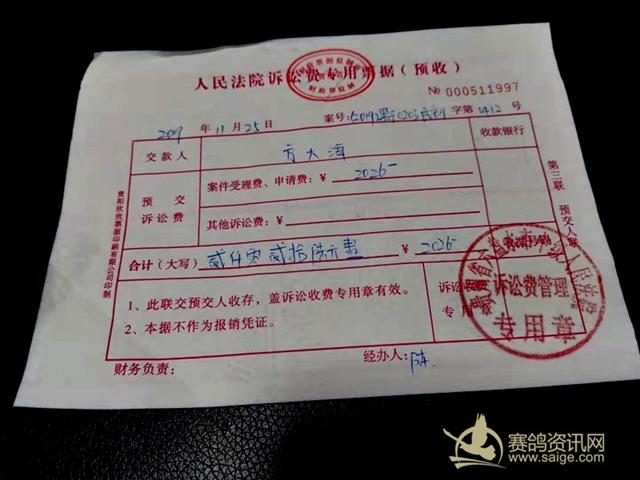 人民法院诉讼费专用票据（预收）
№ 000511997
2019 年 11 月 25 日
案号: 字第 1412 号
交款人
方大海
收款银行
预交诉讼费
案件受理费、申请费：¥ 2026-
其他诉讼费：¥
合计（大写） 贰仟零贰拾陆元整 ¥ 2026-
1、此联交预交人收存，盖诉讼收费专用章有效。
2、本据不作为报销凭证。
诉讼费管理
专用章
第三联 预交人联
贵阳欣欣票据印刷有限公司印制
财务负责：
经办人：
财政部监制
赛鸽资讯网
www.saige.com